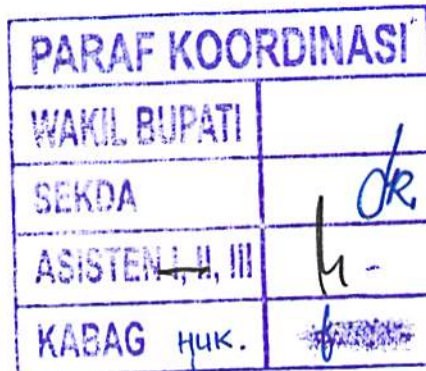 PARAF KOORDINASI
WAKIL BUPATI
SEKDA
ASISTEN I, II, III
KABAG HUK.